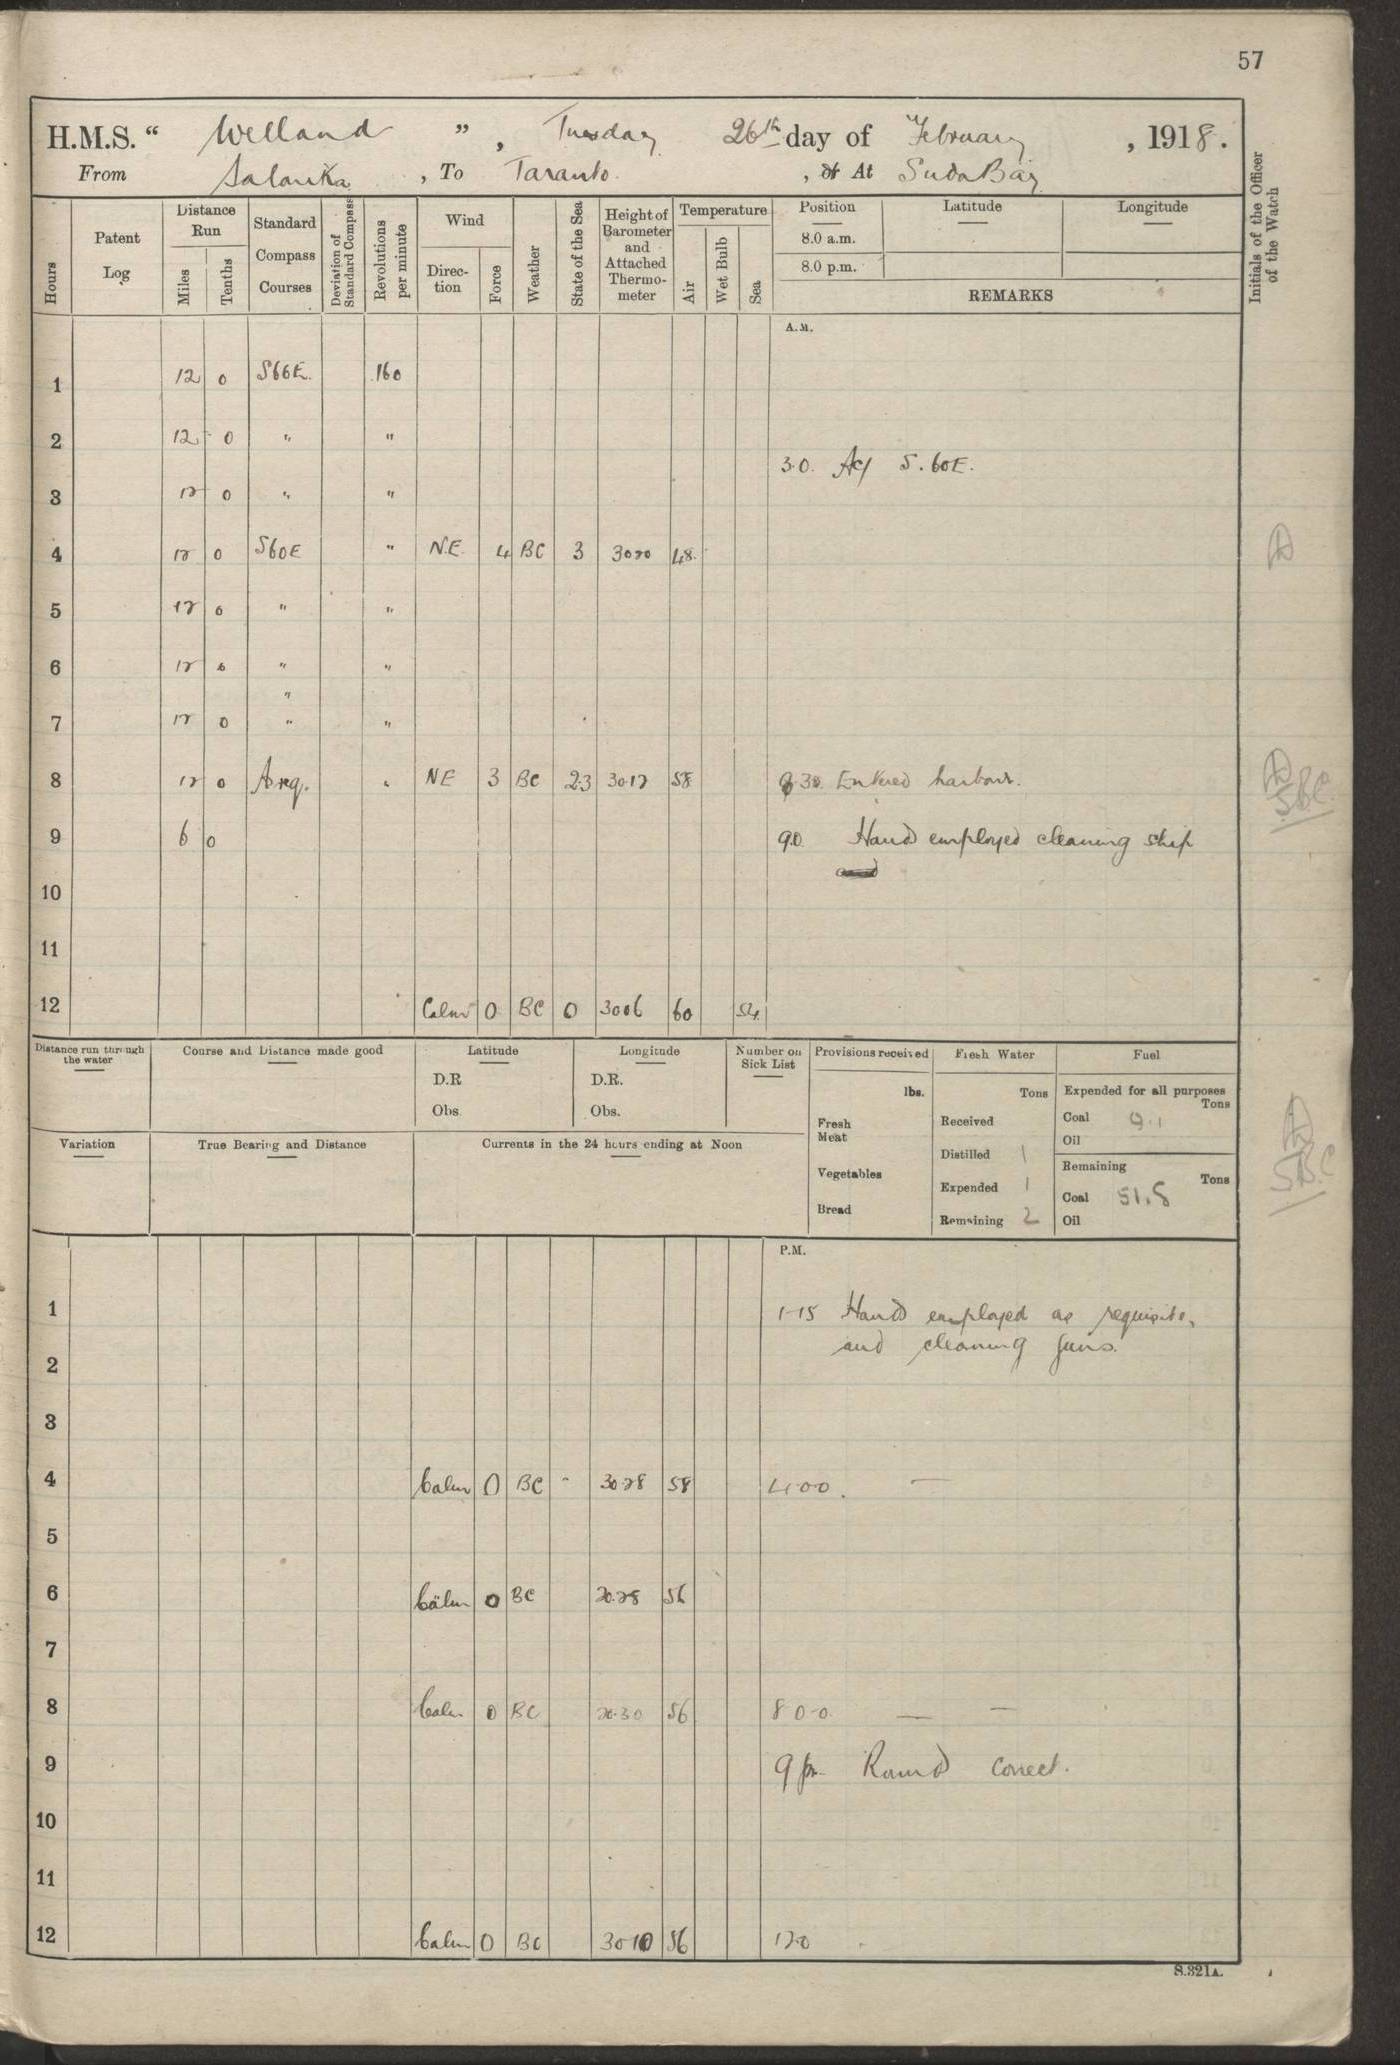 57
H.M.S. “ Welland ”, Tuesday 26th day of February, 1918.
From Salonika, To Taranto., or At Suda Bay
Hours
Patent Log
Distance Run
Miles
Tenths
Standard Compass Courses
Deviation of Standard Compass
Revolutions per minute
Wind
Direction
Force
Weather
State of the Sea
Height of Barometer and Attached Thermometer
Temperature
Air
Wet Bulb
Sea
Position
8.0 a.m.
8.0 p.m.
Latitude
Longitude
REMARKS
Initials of the Officer of the Watch
A.M.
1 12 0 S66E. 160
2 12 0 " "
3.0. A/c S. 60E.
3 12 0 " "
4 12 0 S60E " N.E. 4 BC 3 3020 48.
5 12 0 " "
6 12 0 " "
"
7 12 0 " "
8 12 0 Arq. " NE 3 BC 23 30.12 58 8.30. Entered harbour.
S.B.C.
9 6 0 9.0. Hands employed cleaning ship
10
11
12 Calm 0 BC 0 3006 60 54.
Distance run through the water
Course and Distance made good
Latitude
D.R
Obs.
Longitude
D.R.
Obs.
Number on Sick List
Provisions received
lbs.
Fresh Meat
Vegetables
Bread
Fresh Water
Tons
Received
Distilled 1
Expended 1
Remaining 2
Fuel
Expended for all purposes
Tons
Coal 9.1
Oil
Remaining
Tons
Coal 51.8
Oil
S.B.C
Variation
True Bearing and Distance
Currents in the 24 hours ending at Noon
P.M.
1 1-15 Hands employed as requisite,
and cleaning guns.
2
3
4 Calm 0 BC - 30.28 58 4.00. —
5
6 Calm 0 BC 30.28 56
7
8 Calm 0 BC 30.30 56 8 0-0. — —
9 9 pm Rounds correct.
10
11
12 Calm 0 BC 3010 56 12.0
S.321A.